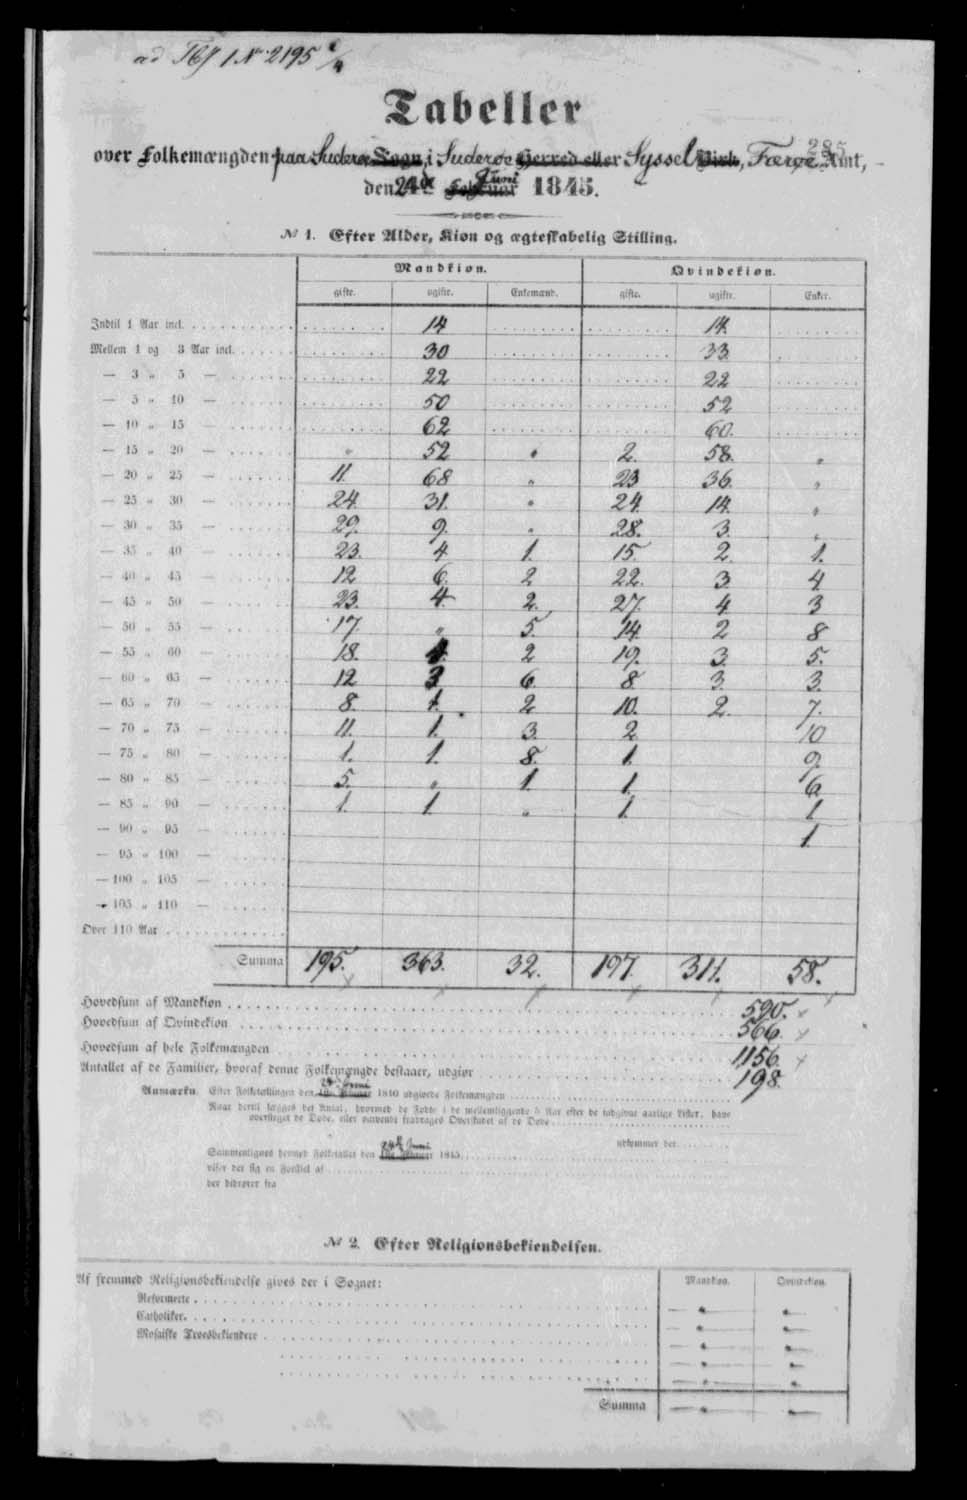 ad Tbf 1 No 2195
285
Tabeller
over Folkemængden paa Suderø Sogn, i Suderøe Herred eller Syssel Birk, Færøe Amt,
den 24de Juni Februar 1845.
№ 1. Efter Alder, Kiøn og ægteskabelig Stilling.
Mandkiøn. Qvindekiøn.
gifte. ugifte. Enkemænd. gifte. ugifte. Enker.
Indtil 1 Aar incl. 14 14.
Mellem 1 og 3 Aar incl. 30 33
— 3 „ 5 — 22 22
— 5 „ 10 — 50 52
— 10 „ 15 — 62 60.
— 15 „ 20 — „ 52 „ 2. 58. „
— 20 „ 25 — 11. 68 „ 23 36. „
— 25 „ 30 — 24. 31. „ 24. 14. „
— 30 „ 35 — 29. 9. „ 28. 3. „
— 35 „ 40 — 23. 4. 1. 15. 2. 1.
— 40 „ 45 — 12 6. 2 22. 3. 4.
— 45 „ 50 — 23. 4. 2. 27. 4. 3
— 50 „ 55 — 17. „ 5. 14. 2 8
— 55 „ 60 — 18. 4. 2 19. 3. 5.
— 60 „ 65 — 12 3 6. 8. 3. 3.
— 65 „ 70 — 8. 1. 2 10. 2. 7.
— 70 „ 75 — 11. 1. 3. 2 10
— 75 „ 80 — 1. 1. 8. 1. 9.
— 80 „ 85 — 5. „ 1 1. 6
— 85 „ 90 — 1. 1 „ 1. 1
— 90 „ 95 — 1.
— 95 „ 100 —
— 100 „ 105 —
— 105 „ 110 —
Over 110 Aar
Summa 195. 363. 32. 197. 311. 58.
Hovedsum af Mandkiøn 590.
Hovedsum af Qvindekiøn 566.
Hovedsum af hele Folkemængden 1156.
Antallet af de Familier, hvoraf denne Folkemængde bestaaer, udgiør 198.
Anmærkn. Efter Folketællingen den 1ste Februar 1840 udgiorde Folkemængden
Naar dertil lægges det Antal, hvormed de Fødte i de mellemliggende 5 Aar efter de indgivne aarlige Lister, have
oversteget de Døde, eller omvendt fradrages Overskudet af de Døde
udkommer der
Sammenlignes hermed Folketallet den 24de Juni 1845
viser der sig en Forskiel af
der hidrører fra
№ 2. Efter Religionsbekiendelsen.
Af fremmed Religionsbekiendelse gives der i Sognet: Mandkiøn. Qvindekiøn.
Reformerte
Catholiker.
Mosaiske Troesbekiendere
Summa